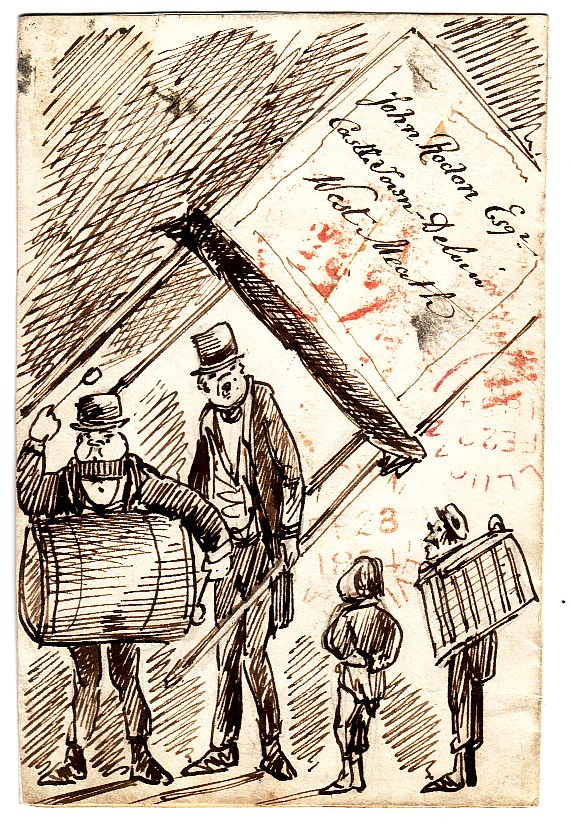 John Rodon Esqr.
Castle Town-Delvin
West Meath
FE 28
28